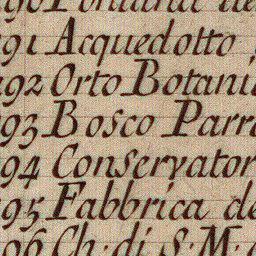 91 Acquedotto
92 Orto Botani
93 Bosco Parr
94 Conservator
95 Fabbrica de
96 Ch. di S. M.